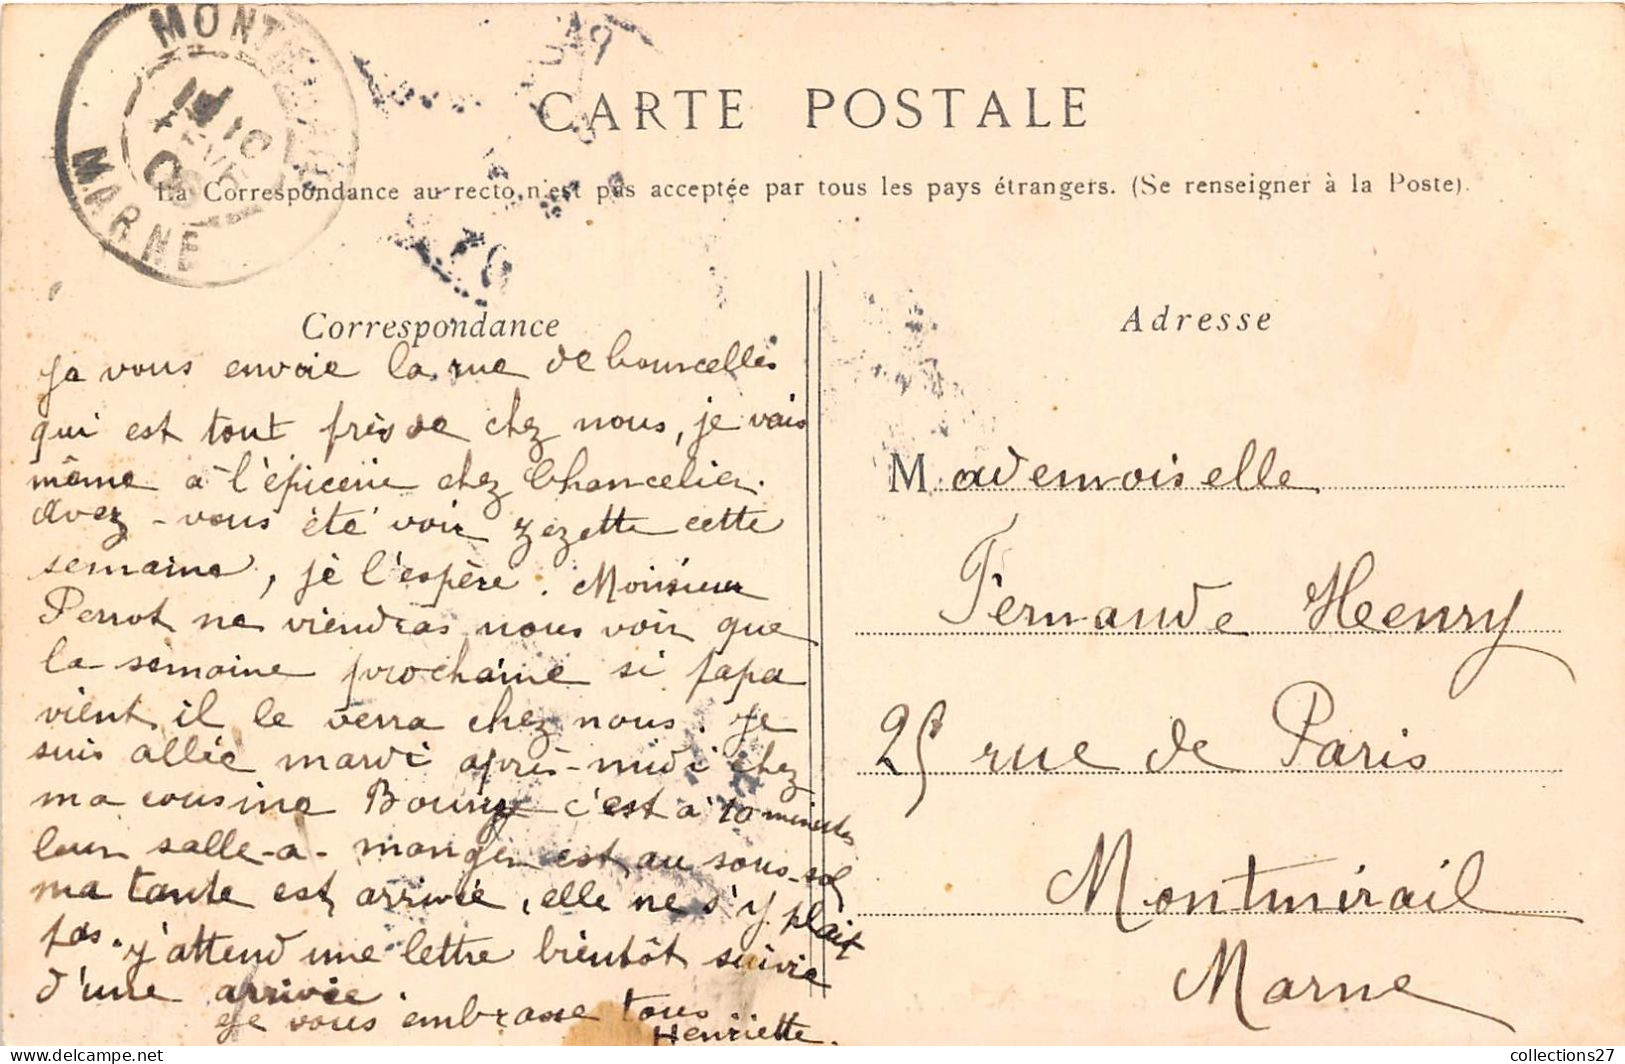 MONTMIRAIL
MARNE
CARTE POSTALE
La Correspondance au recto n'est pas acceptée par tous les pays étrangers. (Se renseigner à la Poste).
Correspondance
Adresse
Je vous envoie la rue de Courcelles
qui est tout près de chez nous, je vais
même à l'épicerie chez Chancelier.
Avez-vous été voir Zézette cette
semaine, je l'espère. Monsieur
Perrot ne viendras nous voir que
la semaine prochaine si papa
vient il le verra chez nous. Je
suis allée mardi après-midi chez
ma cousine Boury c'est à 10 minutes
leur salle-a-manger est au sous-sol
ma tante est arrivée, elle ne s'y plait
pas. j'attend une lettre bientôt suivie
d'une arrivée.
Je vous embrasse tous
Henriette.
Mademoiselle
Fernande Henry
25 rue de Paris
Montmirail
Marne
collections27